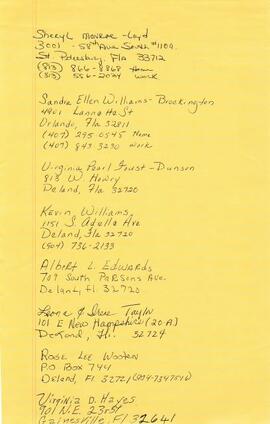 Sheryl Monroe-Loyd
3001 - 58th Ave. South #1109
St. Petersburg, Fla 33712
(813) 866-8868 Home
(813) 556-2024 Work
Sandra Ellen Williams-Brookington
4901 Lanna He St
Orlando, Fla 32811
(407) 295-0545 Home
(407) 843-3230 Work
Virginia Pearl Foust-Dunson
813 W Howry
Deland, Fla 32720
Kevin Williams,
1151 S. Adelle Ave
Deland, Fla 32720
(904) 736-2133
Albert L. Edwards
707 South Parsons Ave.
Deland, fl 32720
& Taylor
101 E New Hampshire (20-A)
DeLand, Fl. 32724
Rose Lee Wooten
P.O Box 7441
Deland, Fl 32721 (904-7347516)
Virginia D. Hayes
901 N.E. 23rd St
Gainesville, Fl 32641